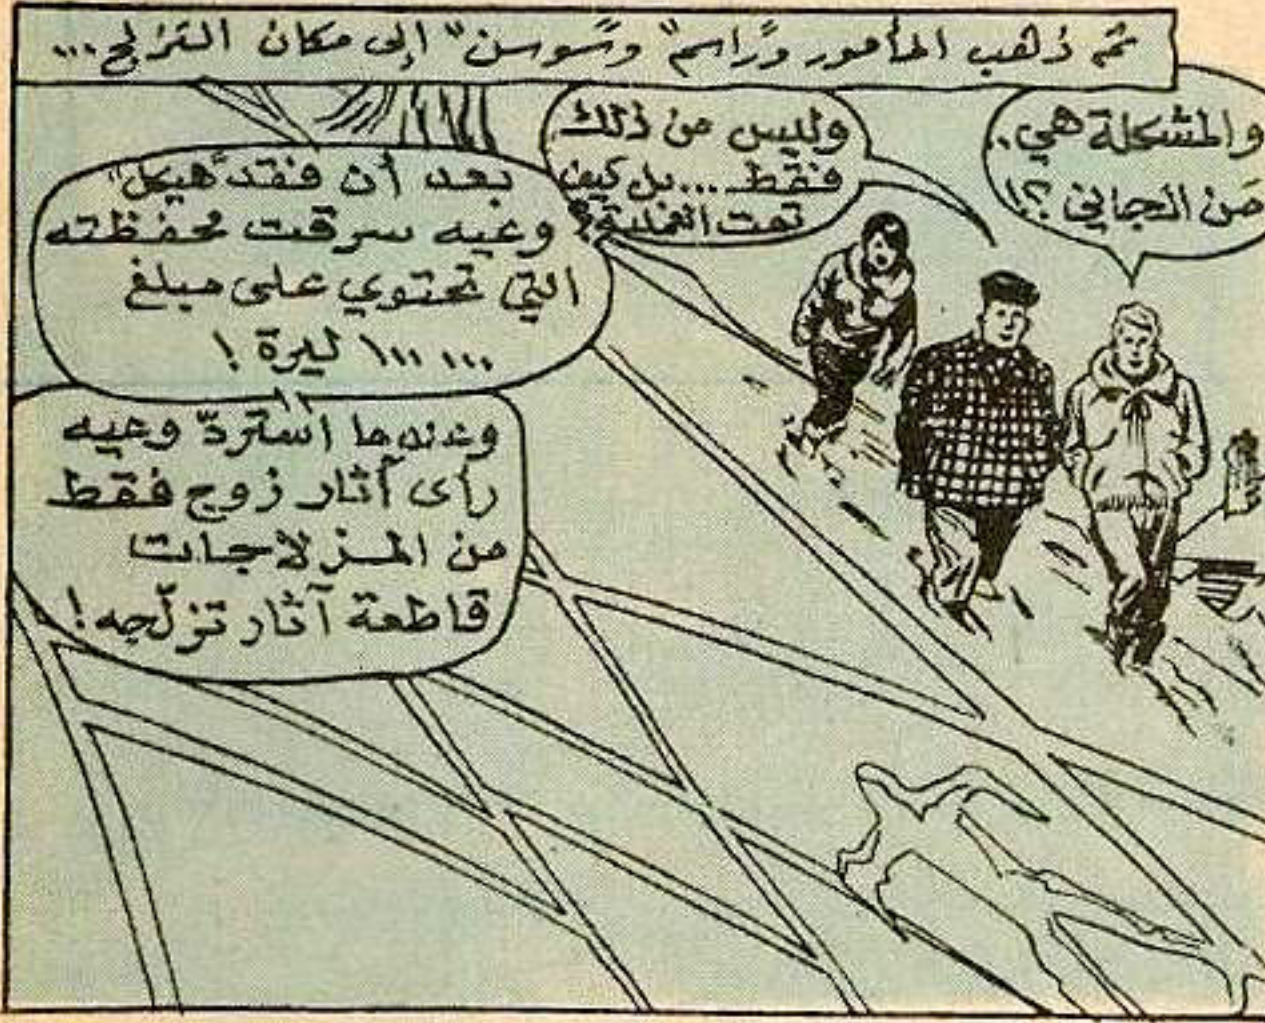 ثم ذهب المأمور و"راسم" و"سوسن" إلى مكان التزلج...
والمشكلة هي..
مَن الجاني؟!
وليس من ذلك
فقط... بل كيف
تمت العملية؟
بعد أن فقد "هيكل"
وعيه سرقت محفظته
التي تحتوي على مبلغ
١٠٠٠ ٠٠٠ ليرة!
وعندما استردّ وعيه
رأى آثار زوج فقط
من المزلاجات
قاطعة آثار تزلّجه!